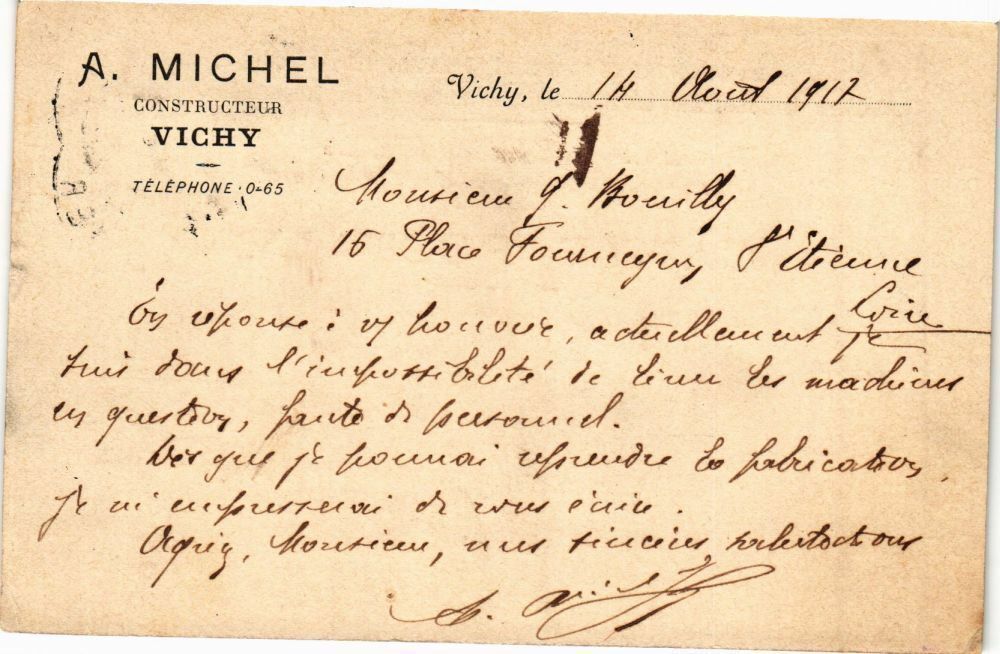 A. MICHEL
CONSTRUCTEUR
VICHY
TÉLÉPHONE · 0-65
Vichy, le 14 Août 1917
Monsieur J. Bouilly
15 Place Fourneyron, St Etienne
Loire
En réponse à v/ honorée, actuellement je
suis dans l'impossibilité de livrer les machines
en question, faute de personnel.
Dès que je pourrai reprendre la fabrication,
je m'empresserai de vous écrire.
Agréez, Monsieur, mes sincères salutations